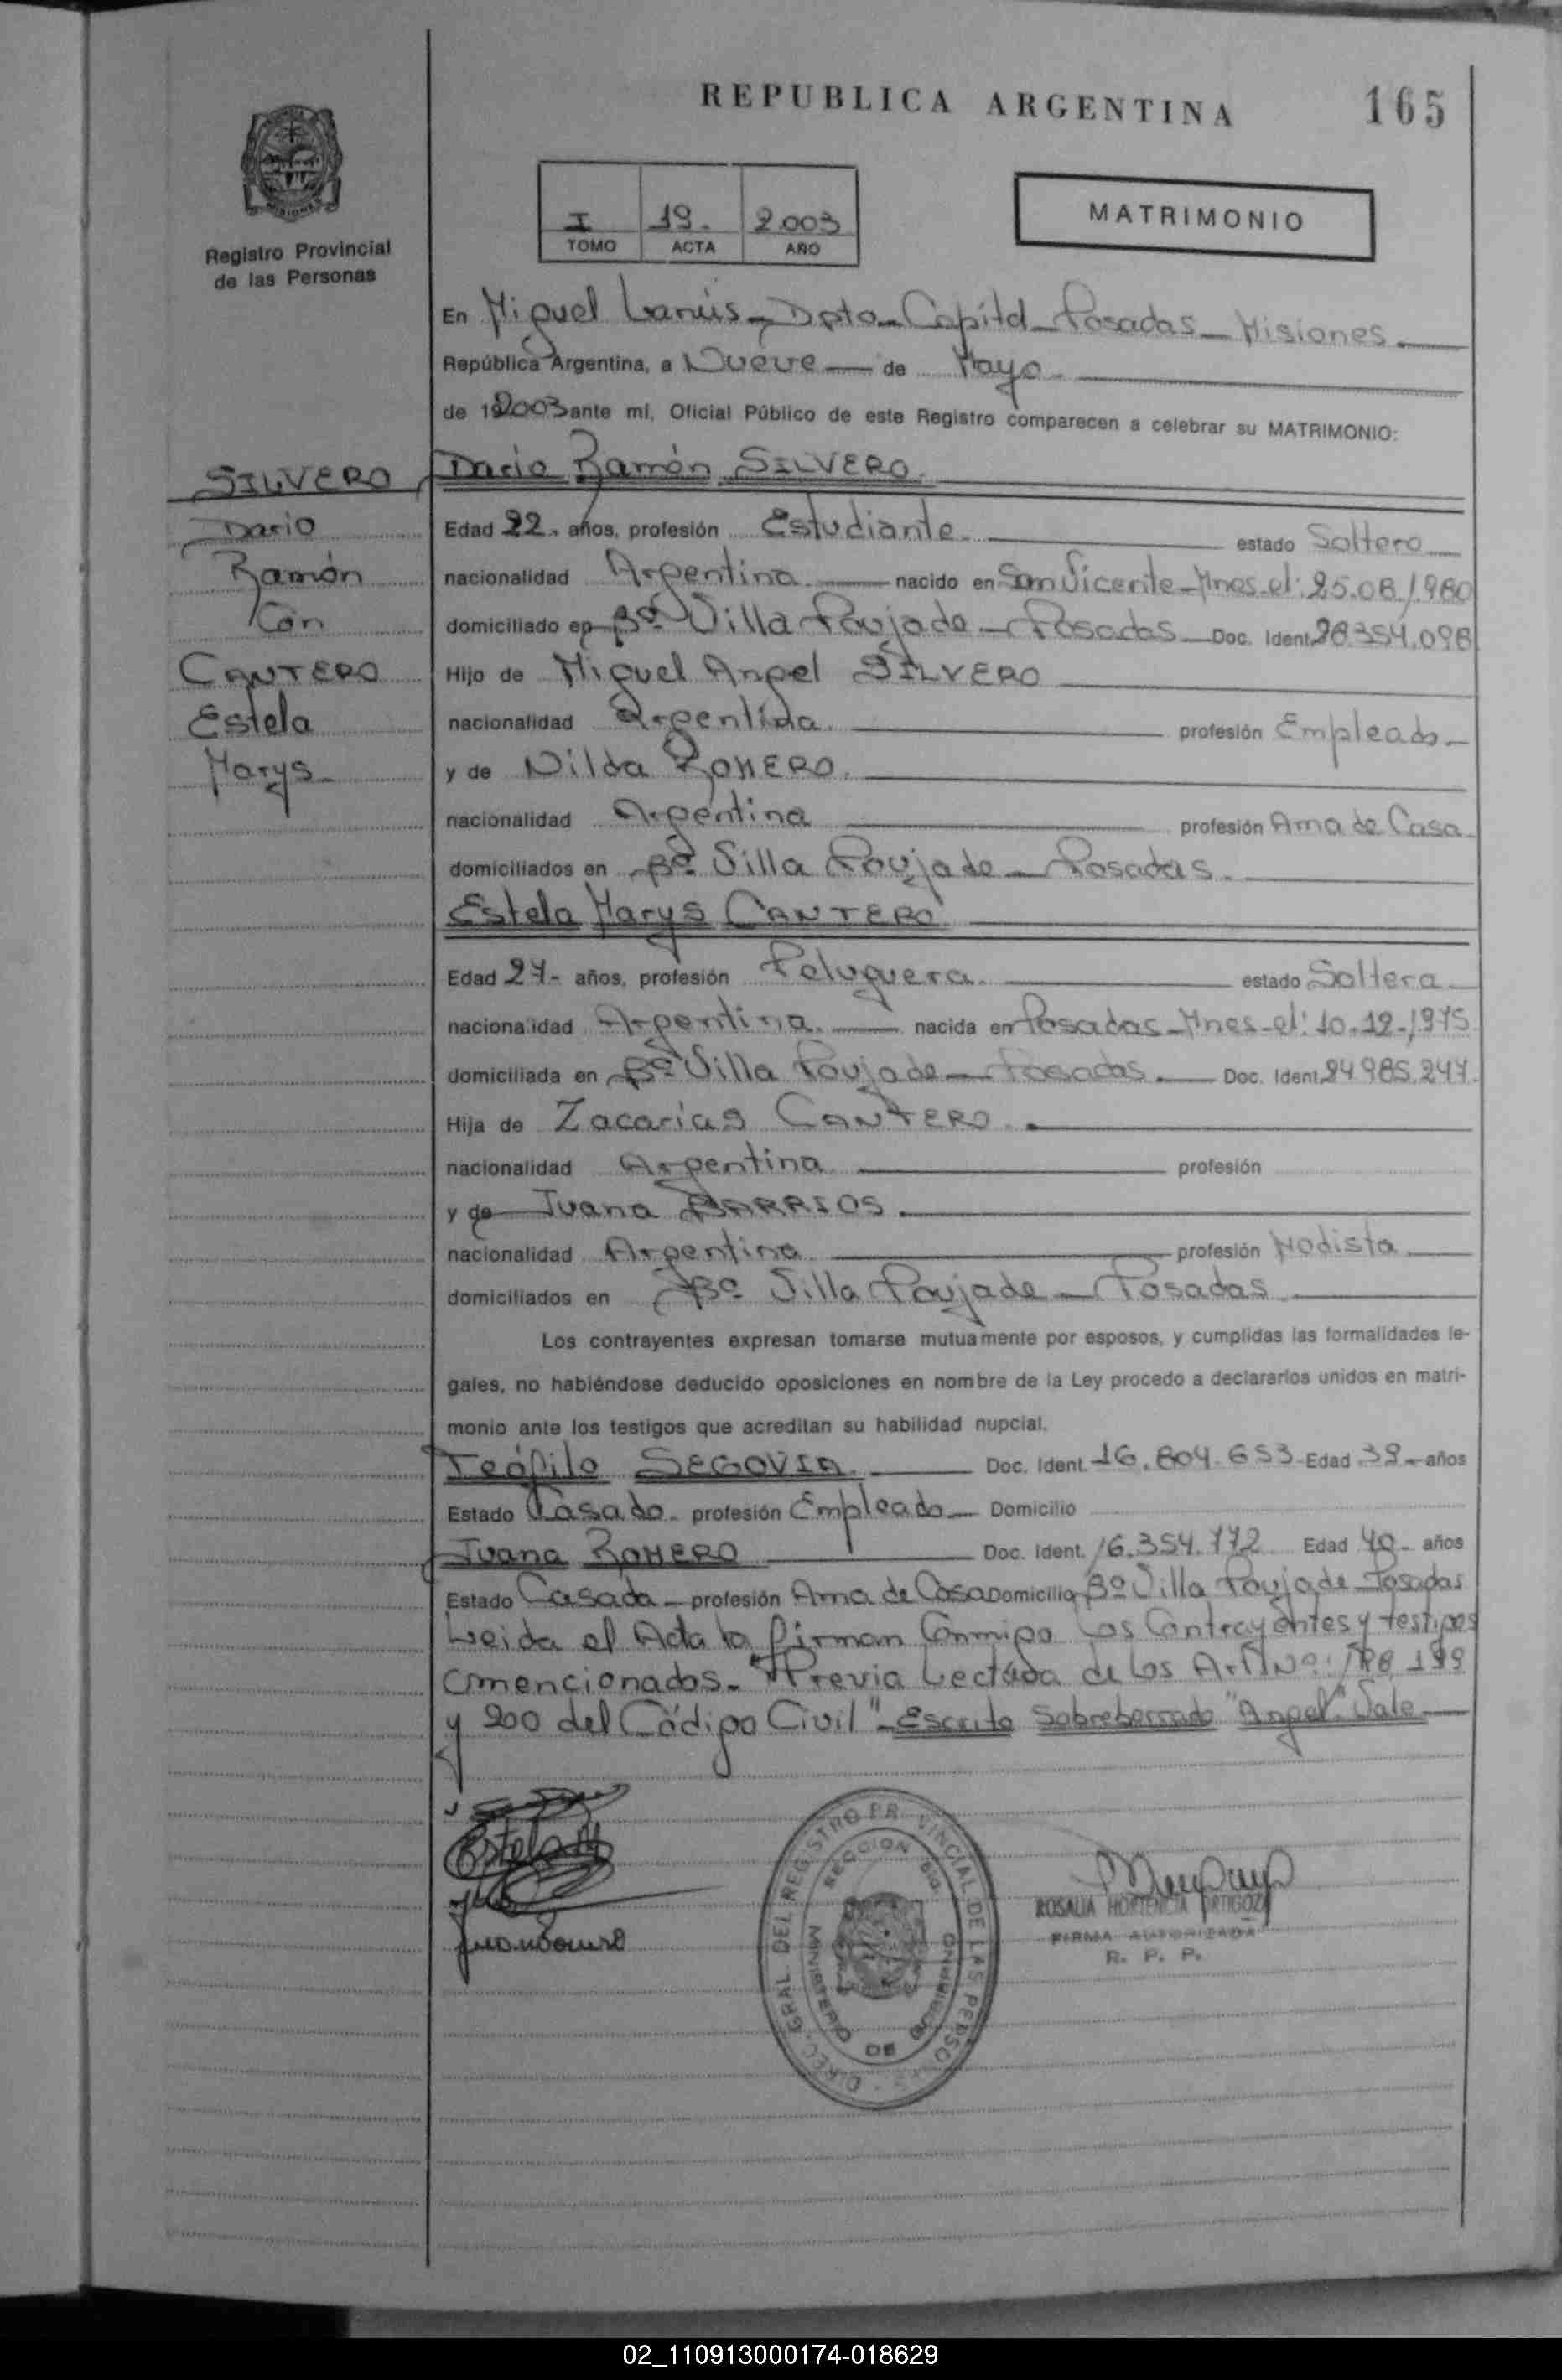 REPUBLICA ARGENTINA
165
Registro Provincial
de las Personas
I 19. 2.003
TOMO ACTA AÑO
MATRIMONIO
En Miguel Lanús - Dpto - Capital - Posadas - Misiones.
República Argentina, a Nueve de Mayo.
de 2003 ante mí, Oficial Público de este Registro comparecen a celebrar su MATRIMONIO:
SILVERO
Dario
Ramón
Con
CANTERO
Estela
Marys
Dario Ramón SILVERO.
Edad 22. años, profesión Estudiante. estado Soltero
nacionalidad Argentina. nacido en San Vicente - Mnes. el: 25.08.1980
domiciliado en Bº Villa Poujade - Posadas Doc. Ident. 28.354.098
Hijo de Miguel Angel SILVERO
nacionalidad Argentina. profesión Empleado
y de Nilda ROMERO.
nacionalidad Argentina profesión Ama de Casa
domiciliados en Bº Villa Poujade - Posadas.
Estela Marys CANTERO
Edad 27- años, profesión Peluquera. estado Soltera
nacionalidad Argentina. nacida en Posadas - Mnes - el: 10-12-1975
domiciliada en Bº Villa Poujade - Posadas. Doc. Ident. 24985.247
Hija de Zacarias CANTERO.
nacionalidad Argentina profesión
y de Juana BARRIOS.
nacionalidad Argentina profesión Modista
domiciliados en Bº Villa Poujade - Posadas
Los contrayentes expresan tomarse mutuamente por esposos, y cumplidas las formalidades le-
gales, no habiéndose deducido oposiciones en nombre de la Ley procedo a declararlos unidos en matri-
monio ante los testigos que acreditan su habilidad nupcial.
Teófilo SEGOVIA. Doc. Ident. 16.804.653 Edad 39 años
Estado Casado. profesión Empleado Domicilio
Juana ROMERO Doc. Ident. 16.354.772 Edad 40- años
Estado Casada profesión Ama de Casa Domicilio Bº Villa Poujade - Posadas
Leida el Acta la firman Conmigo Los Contrayentes y testigos
mencionados. "Previa Lectura de los Art. Nº: 198, 199
y 200 del Código Civil" - Escrito Sobreborrado "Angel" Vale
Estela M
Juana Romero
DIREC. GRAL. DEL REGISTRO PROVINCIAL DE LAS PERSONAS
MINISTERIO DE GOBIERNO
ROSALIA HORTENCIA ORTIGOZA
FIRMA AUTORIZADA
R. P. P.
02_110913000174-018629